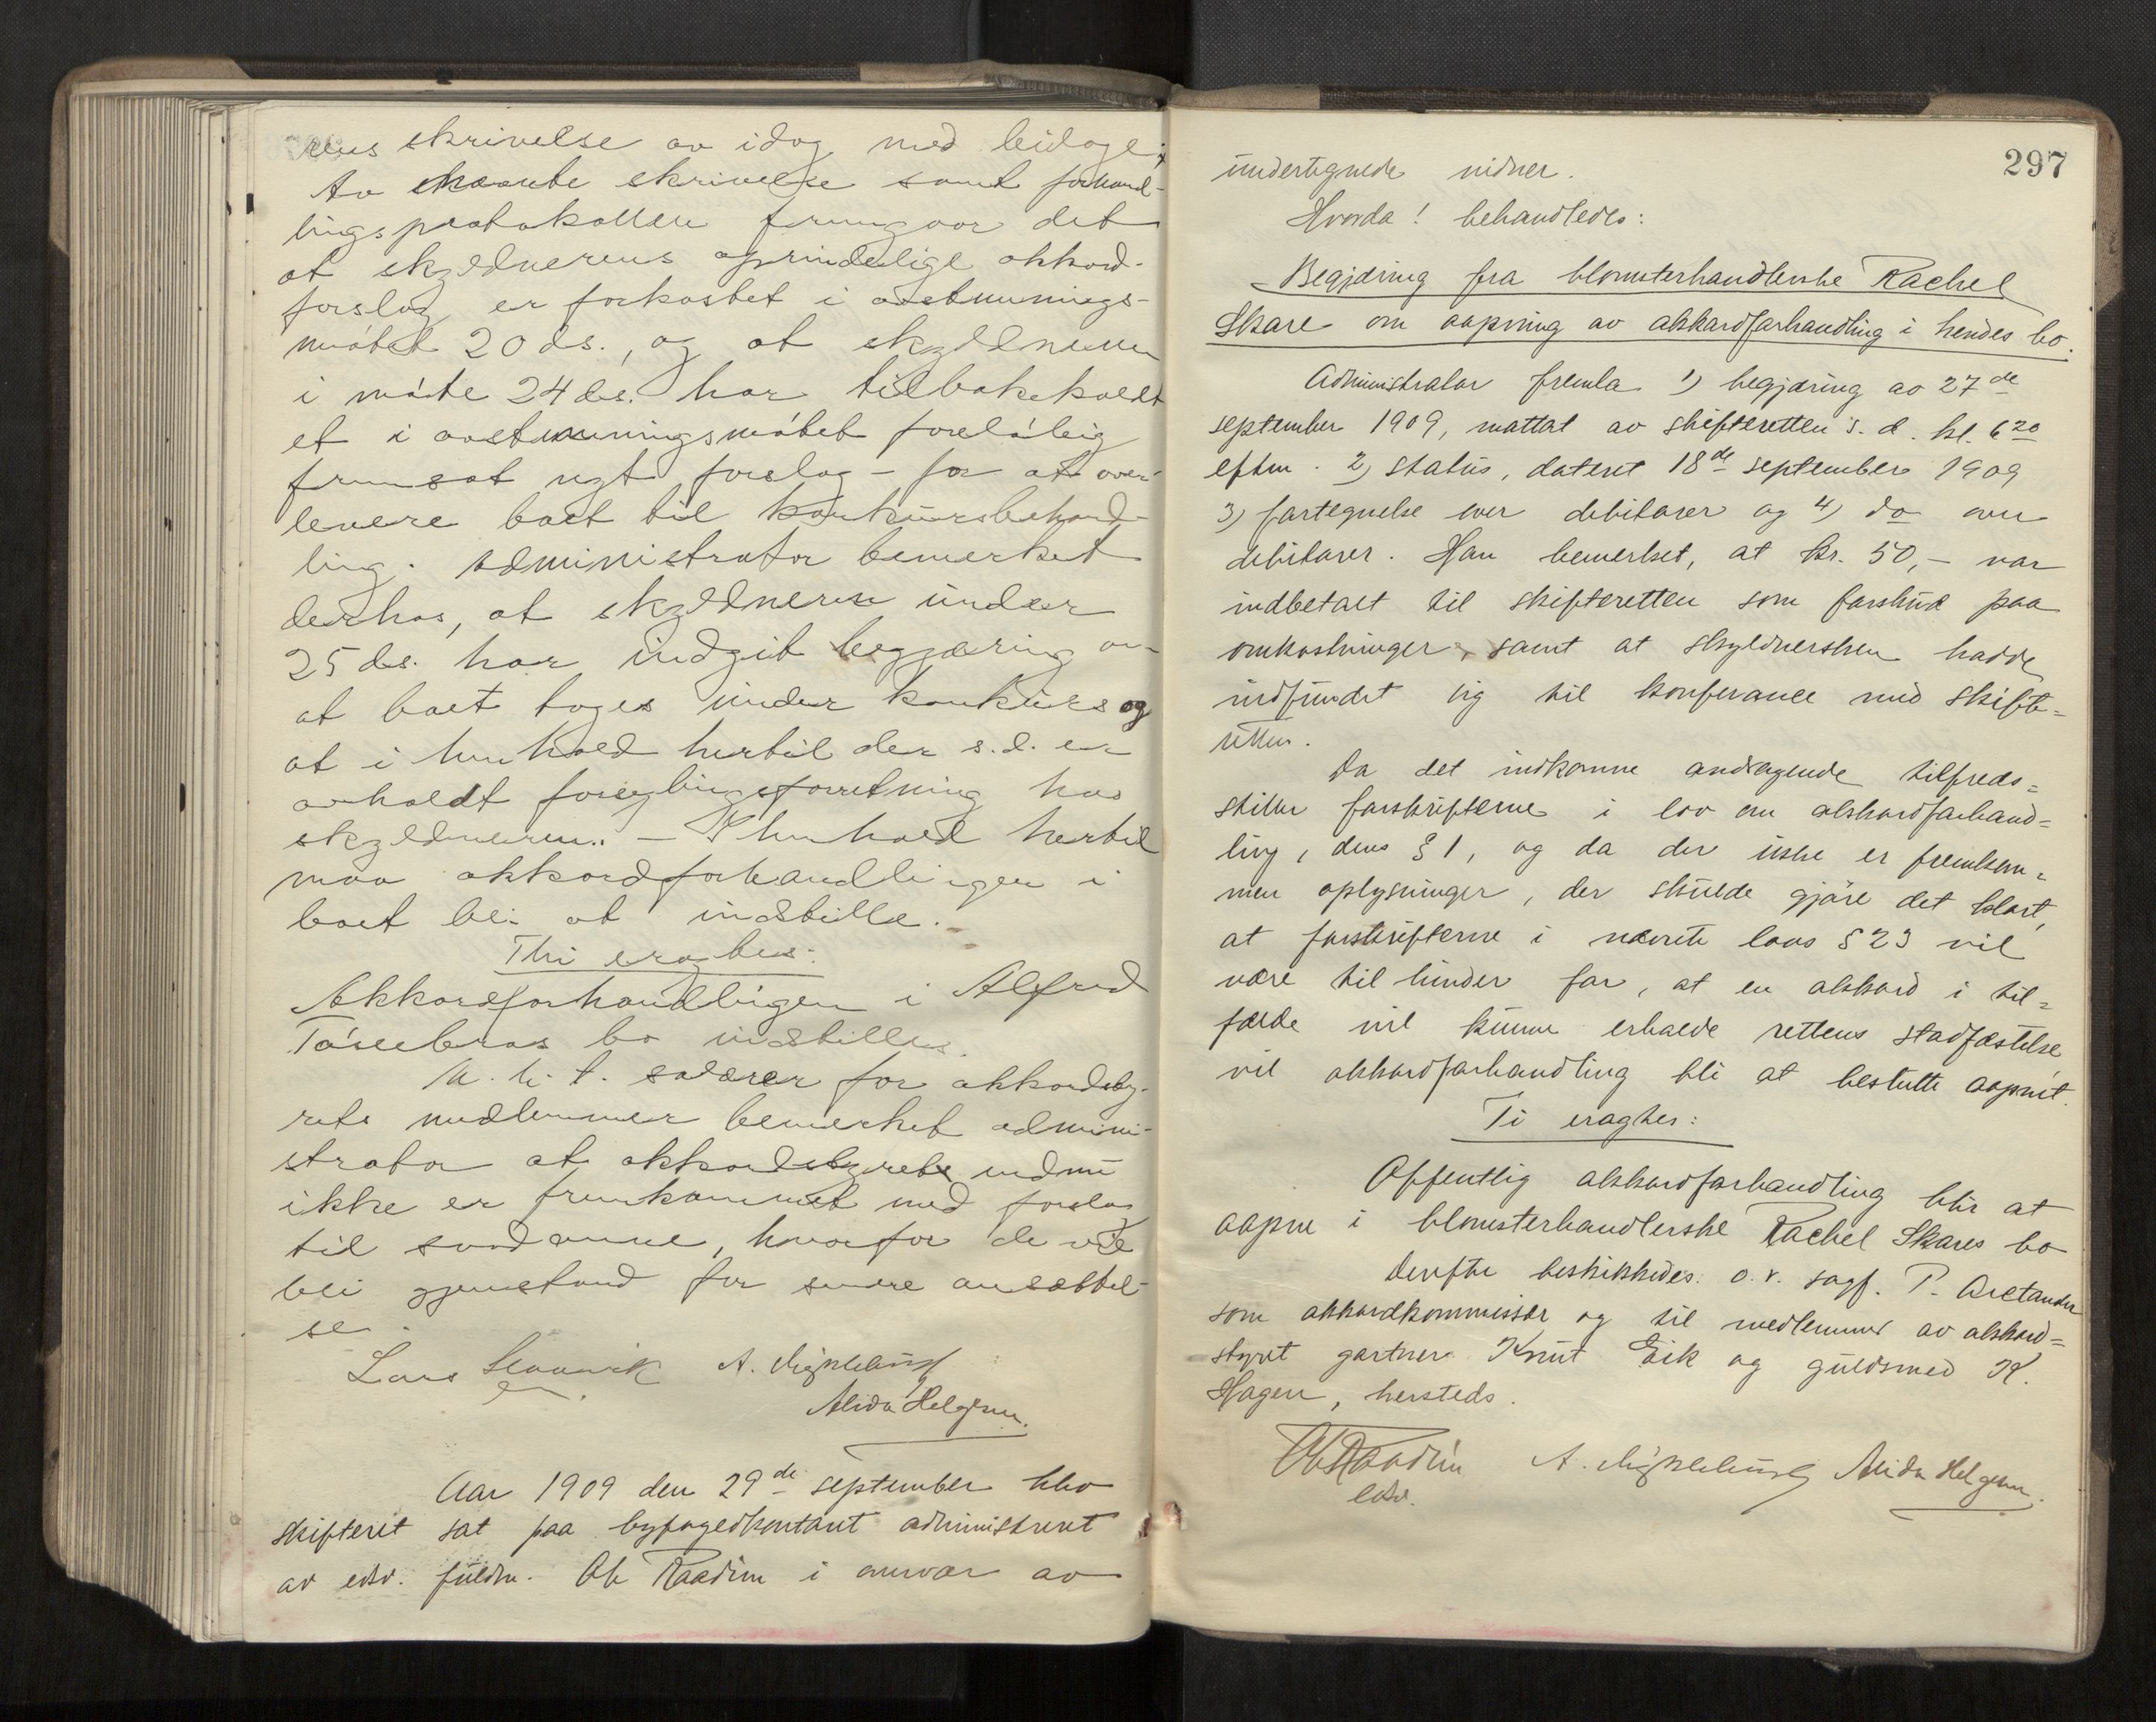 rens skrivelse av idag med beilage;
Av skrivelse samt forhand-
lingsprotokollen fremgaar det
at skyldnerens oprindelige akkord-
forslag er forkastet i avstemnings-
møtet 20 ds., og at skyldneren
i møte 24 ds. har tilbakekaldt
et i avstemningsmøtet foreløbig
fremsat nyt forslag – for at over-
levere boet til konkursbehand-
ling. Administrator bemerket
derhos, at skyldneren under
25 ds. har indgit begjæring om
at boet toges under konkurs og
at i henhold hertil der s.d. er
avholdt forseglingsforretning hos
skyldneren. – I henhold hertil
maa akkordforhandlingen i
boet bli at indstille.
Thi eragtes:
Akkordforhandlingen i Alfred
bo indstilles.
M. h. t. salærer for akkordsty-
rets medlemmer bemerket admini-
strator at akkordstyrets endnu
ikke er fremkommet med forslag
til saadanne, hvorfor de vil
bli gjenstand for senere ansættel-
se.
Lars A.
Alida Helgesen.
Aar 1909 den 29de september blev
skifteret sat paa byfogedkontoret administreret
av edsv. fuldm. Ole Raadim i nærvær av
297
undertegnede vidner.
Hvorda! behandledes:
Begjæring fra blomsterhandlerske Rachel
Skare om aapning av akkordforhandling i hendes bo.
Administrator fremla 1) begjæring av 27de
september 1909, mottat av skifteretten s. d. kl. 6 20
eftm. 2) status, dateret 18de september 1909
3) fortegnelse over debitorer og 4) do over
debitorer. Han bemerket, at kr. 50,– var
indbetalt til skifteretten som forskud paa
omkostninger, samt at skyldnersken hadde
indfundet sig til konferance med skifte=
retten.
Da det indkomne andragende tilfreds=
stiller forskrifterne i lov om akkordforhand=
ling, dens § 1, og da der ikke er fremkom=
men oplysninger, der skulde gjøre det klart,
at forskrifterne i nævnte lovs § 23 vil
være til hinder for, at en akkord i til=
fælde vil kunne erholde rettens stadfæstelse
vil akkordforhandling bli at beslutte aapnet.
Ti eragtes:
Offentlig akkordforhandling blir at
aapne i blomsterhandlerske Rachel Skares bo
Derefter beskikkedes o.r. sagf. P. Aretander
som akkordkommissær og til medlemmer av akkord=
styret gartner Knut Eik og guldsmed K.
Hagen, hersteds.
Ole Raadim A. Alida Helgesen.
edsv.